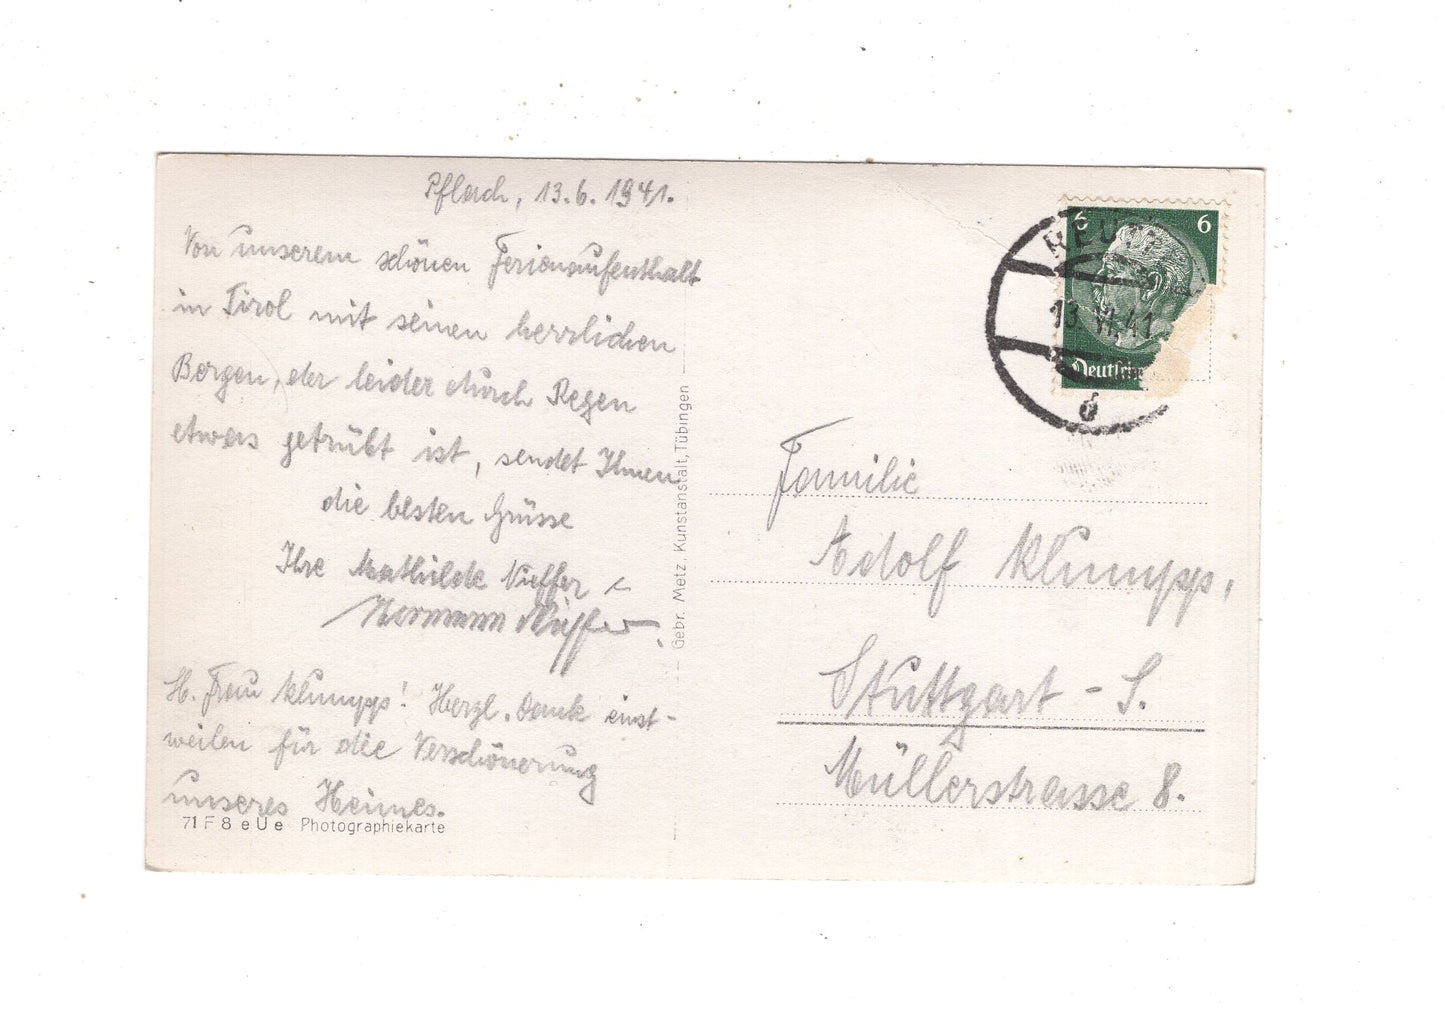 Pflach, 13.6.1941.
Von unserem schönen Ferienaufenthalt
in Tirol mit seinen herrlichen
Bergen, der leider durch Regen
etwas getrübt ist, sendet Ihnen
die besten Grüsse
Ihre Mathilde Nieffer
Hermann Nieffer.
H. Frau Klumpp! Herzl. Dank einst-
weilen für die Verschönerung
unseres Heimes.
71 F 8 e U e Photographiekarte
Gebr. Metz, Kunstanstalt, Tübingen
6 6
REUT
13.VI.41
d
Deutsche
Familie
Adolf Klumpp,
Stuttgart - S.
Müllerstrasse 8.